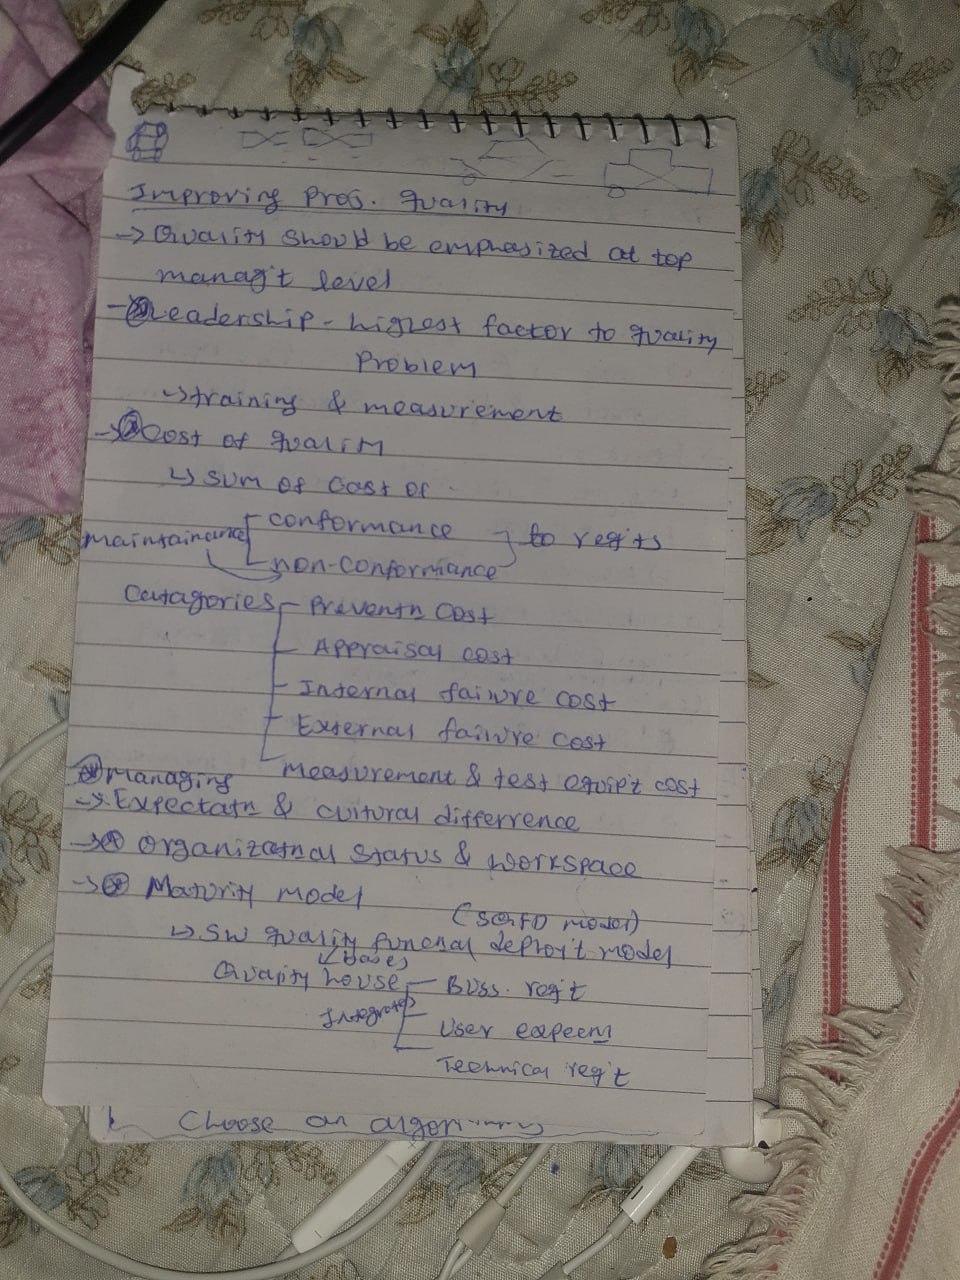 Improving Proj. quality
→ Quality should be emphasized at top
manag't level
→ Leadership - highest factor to quality
Problem
↳ training & measurement
→ Cost of quality
↳ sum of cost of
conformance
maintainance to reqits
non-conformance
Catagories Preventn cost
Appraisal cost
Internal failure cost
External failure cost
Measurement & test equip't cost
Managing
→ Expectatn & cultural differrence
→ Organizatnal status & workspace
→ Maturity model
(SQFD model)
↳ SW quality funcnal deploy't model
(base)
Quality house Buss. reqit
Integrates
User
Technical req't
Choose an